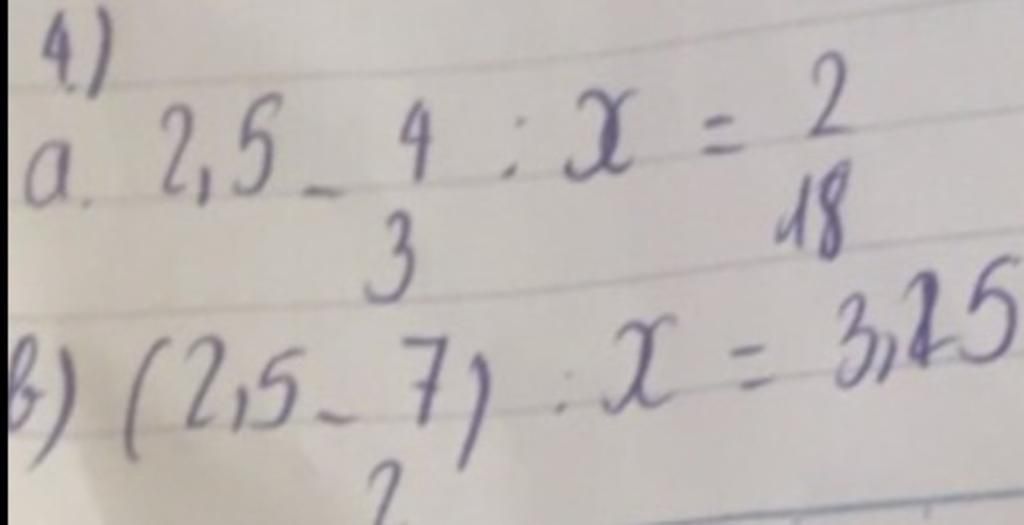 4.)
a. 2,5 - 4/3 : x = 2/18
b) (2,5 - 7/2) : x = 3,25